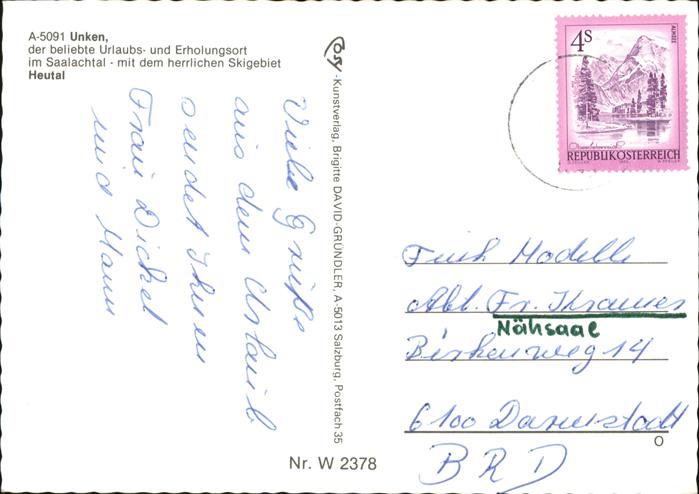 A-5091 Unken,
der beliebte Urlaubs- und Erholungsort
im Saalachtal - mit dem herrlichen Skigebiet
Heutal
Viele Grüße
aus dem Urlaub
sendet Ihnen
Frau Dickel
und Mann
Cosy-Kunstverlag, Brigitte DAVID-GRÜNDLER, A-5013 Salzburg, Postfach 35
Nr. W 2378
4S
ALMSEE
Oberösterreich
REPUBLIK ÖSTERREICH
Fink Modelle
Abt. Fr. Kramer
Nähsaal
Birkenweg 14
6100 Darmstadt
O
BRD